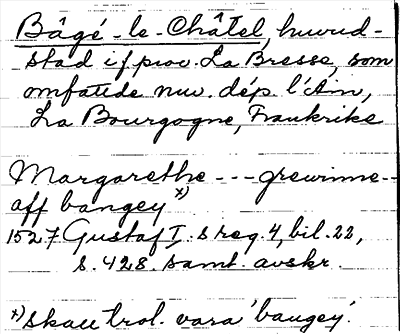 Bâgé-le-Châtel, huvud-
stad i f. prov. La Bresse, som
omfatade nuv. dép. l'Ain,
La Bourgogne, Frankrike
Margarethe --- grewinne--
aff bangey x)
1527 Gustaf I:s reg. 4, bil. 22,
s. 428. samt. avskr.
x) skall trol. vara 'baugey'.